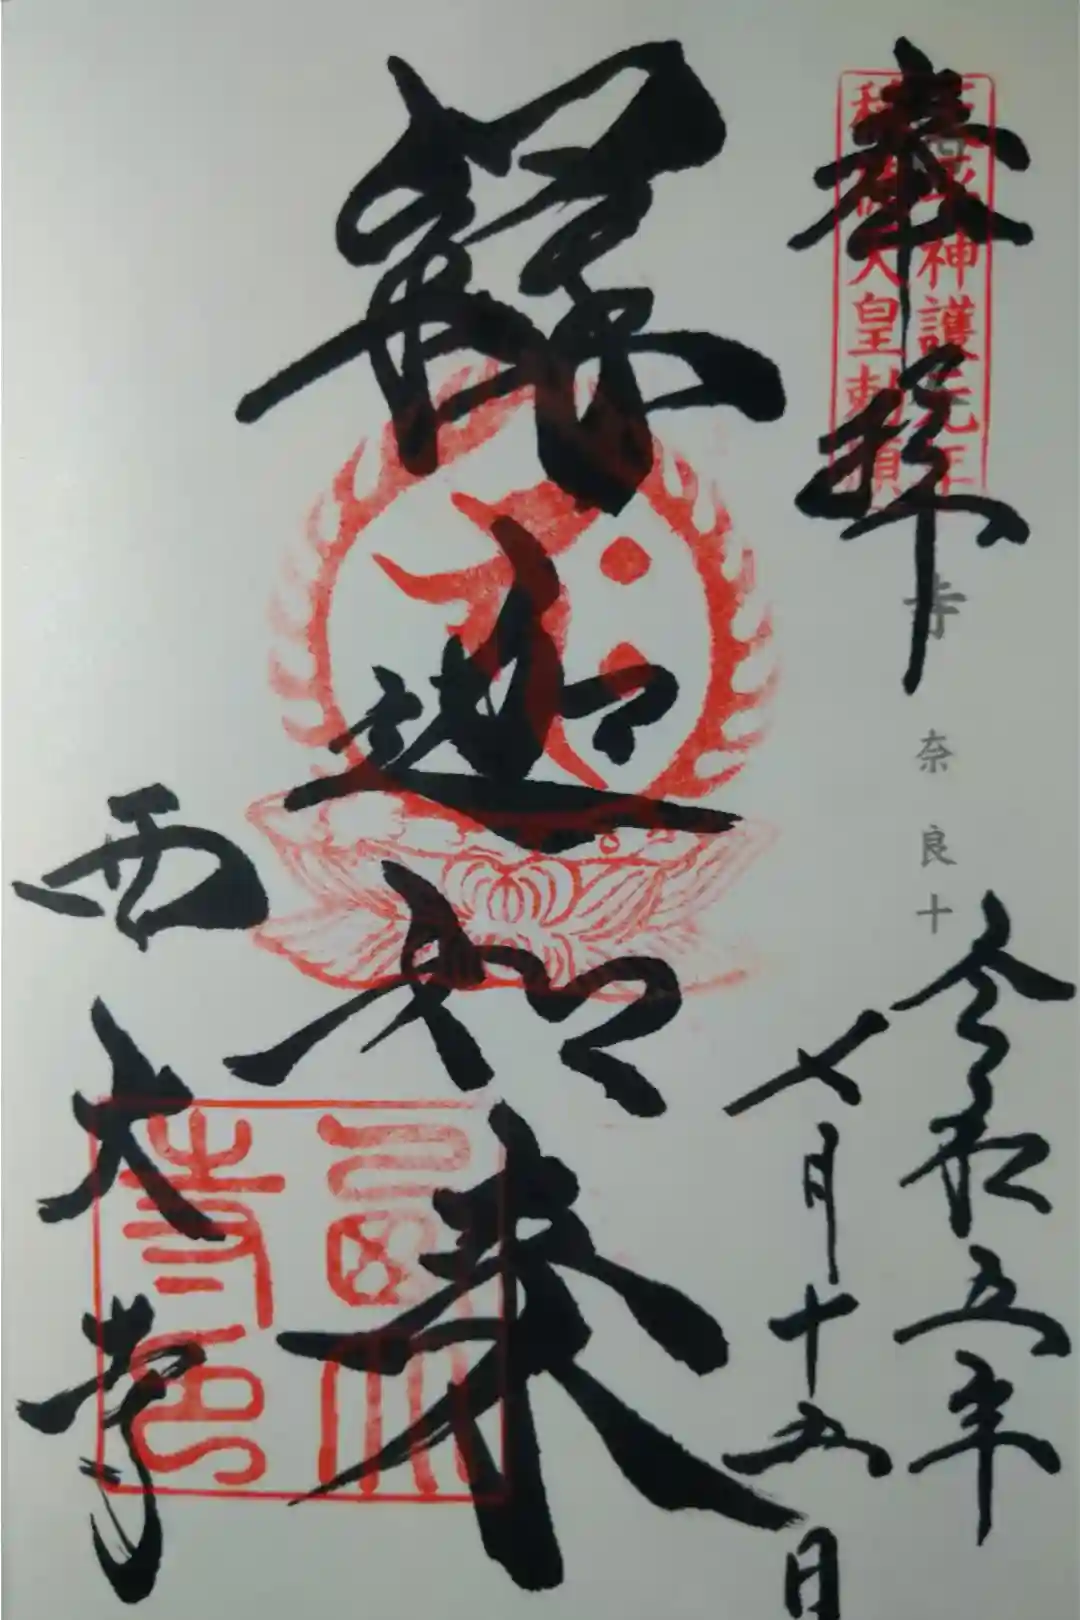 奉拝
天平神護元年
称徳天皇勅願
寺
奈良十
令和五年
七月十五日
釋迦如来
西大寺
西大
寺印